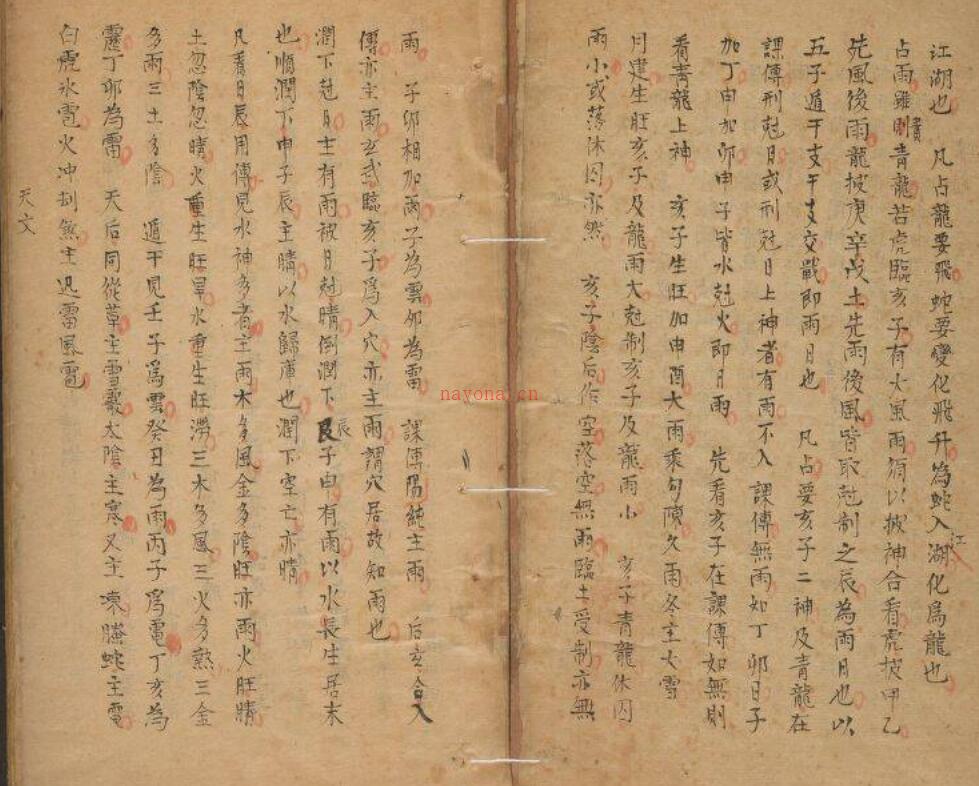 江湖也　凡占龍要飛蛇要變化飛升為蛇入江湖化為龍也
占雨雖責青龍若虎臨亥子有大風雨須以披神合看虎披甲乙
先風後雨龍披庚辛戊土先雨後風皆取尅制之辰為雨日也以
五子遁干支干支交戰即雨日也　凡占要亥子二神及青龍在
課傳刑尅日或刑尅日上神者有雨不入課傳無雨如丁卯日子
加丁申加卯申子皆水尅火即日雨　先看亥子在課傳如無則
看青龍上神　亥子生旺加申酉大雨乘勾陳久雨冬主大雪
月建生旺亥子及龍雨大尅制亥子及龍雨小　亥子青龍休囚
雨小或落休囚亦然　亥子陰后作空落空無雨臨土受制亦無
雨　子卯相加雨子為雲卯為雷　課傳陽純主雨　后玄合入
傳亦主雨玄武臨亥子為入穴亦主雨謂穴居故知雨也
潤下尅日主有雨被日尅晴倒潤下辰子申有雨以水長生居末
也順潤下申子辰主晴以水歸庫也潤下空亡亦晴
凡看日辰用傳見水神多者主雨木多風金多陰旺亦雨火旺晴
土忽陰忽晴火重生旺旱水重生旺澇三木多風三火多熱三金
多雨三土多陰　遁干見壬子為雲癸丑為雨丙子為電丁亥為
霆丁卯為雷　天后同從革主雪霰太陰主寒又主凍螣蛇主電
白虎氷雹火冲刦煞主迅雷風雹
天文
nayona.cn